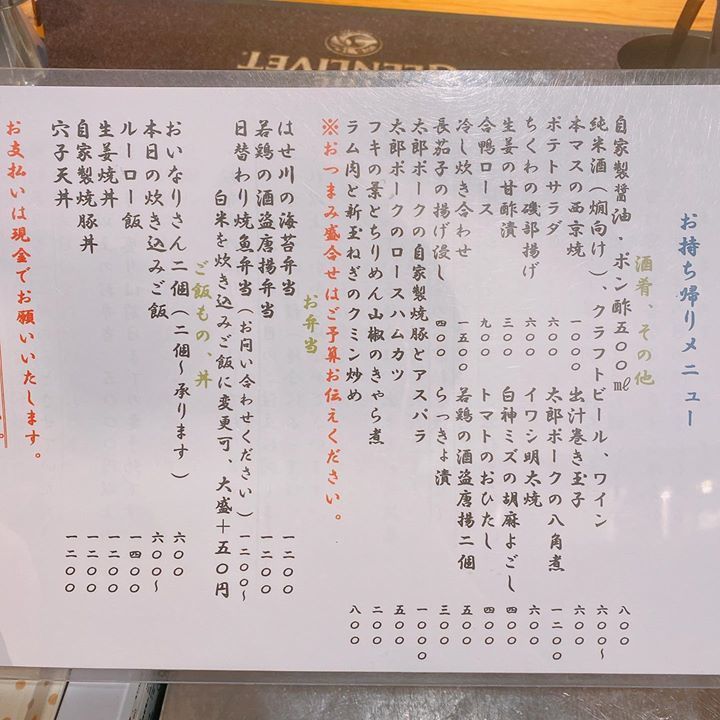 GLENLIVET
お持ち帰りメニュー
酒肴、その他
自家製醤油・ポン酢五〇〇㎖ 八〇〇
純米酒（燗向け）、クラフトビール、ワイン 六〇〇～
本マスの西京焼 一〇〇〇 出汁巻き玉子 六〇〇
ポテトサラダ 六〇〇 太郎ポークの八角煮 一二〇〇
ちくわの磯部揚げ 六〇〇 イワシ明太焼 六〇〇
生姜の甘酢漬 三〇〇 白神ミズの胡麻よごし 四〇〇
合鴨ロース 九〇〇 トマトのおひたし 四〇〇
冷し炊き合わせ 一五〇〇 若鶏の酒盗唐揚二個 五〇〇
長茄子の揚げ浸し 四〇〇 らっきょ漬 三〇〇
太郎ポークの自家製焼豚とアスパラ 一〇〇〇
太郎ポークのロースハムカツ 五〇〇
フキの葉とちりめん山椒のきゃら煮 二〇〇
ラム肉と新玉ねぎのクミン炒め 八〇〇
※おつまみ盛合せはご予算お伝えください。
お弁当
はせ川の海苔弁当 一二〇〇
若鶏の酒盗唐揚弁当 一二〇〇
日替わり焼魚弁当（お問い合わせください） 一二〇〇～
白米を炊き込みご飯に変更可、大盛＋五〇円
ご飯もの、丼
おいなりさん二個（二個～承ります） 六〇〇
本日の炊き込みご飯 六〇〇～
ルーロー飯 一四〇〇
生姜焼丼 一二〇〇
自家製焼豚丼 一二〇〇
穴子天丼 一二〇〇
お支払いは現金でお願いいたします。